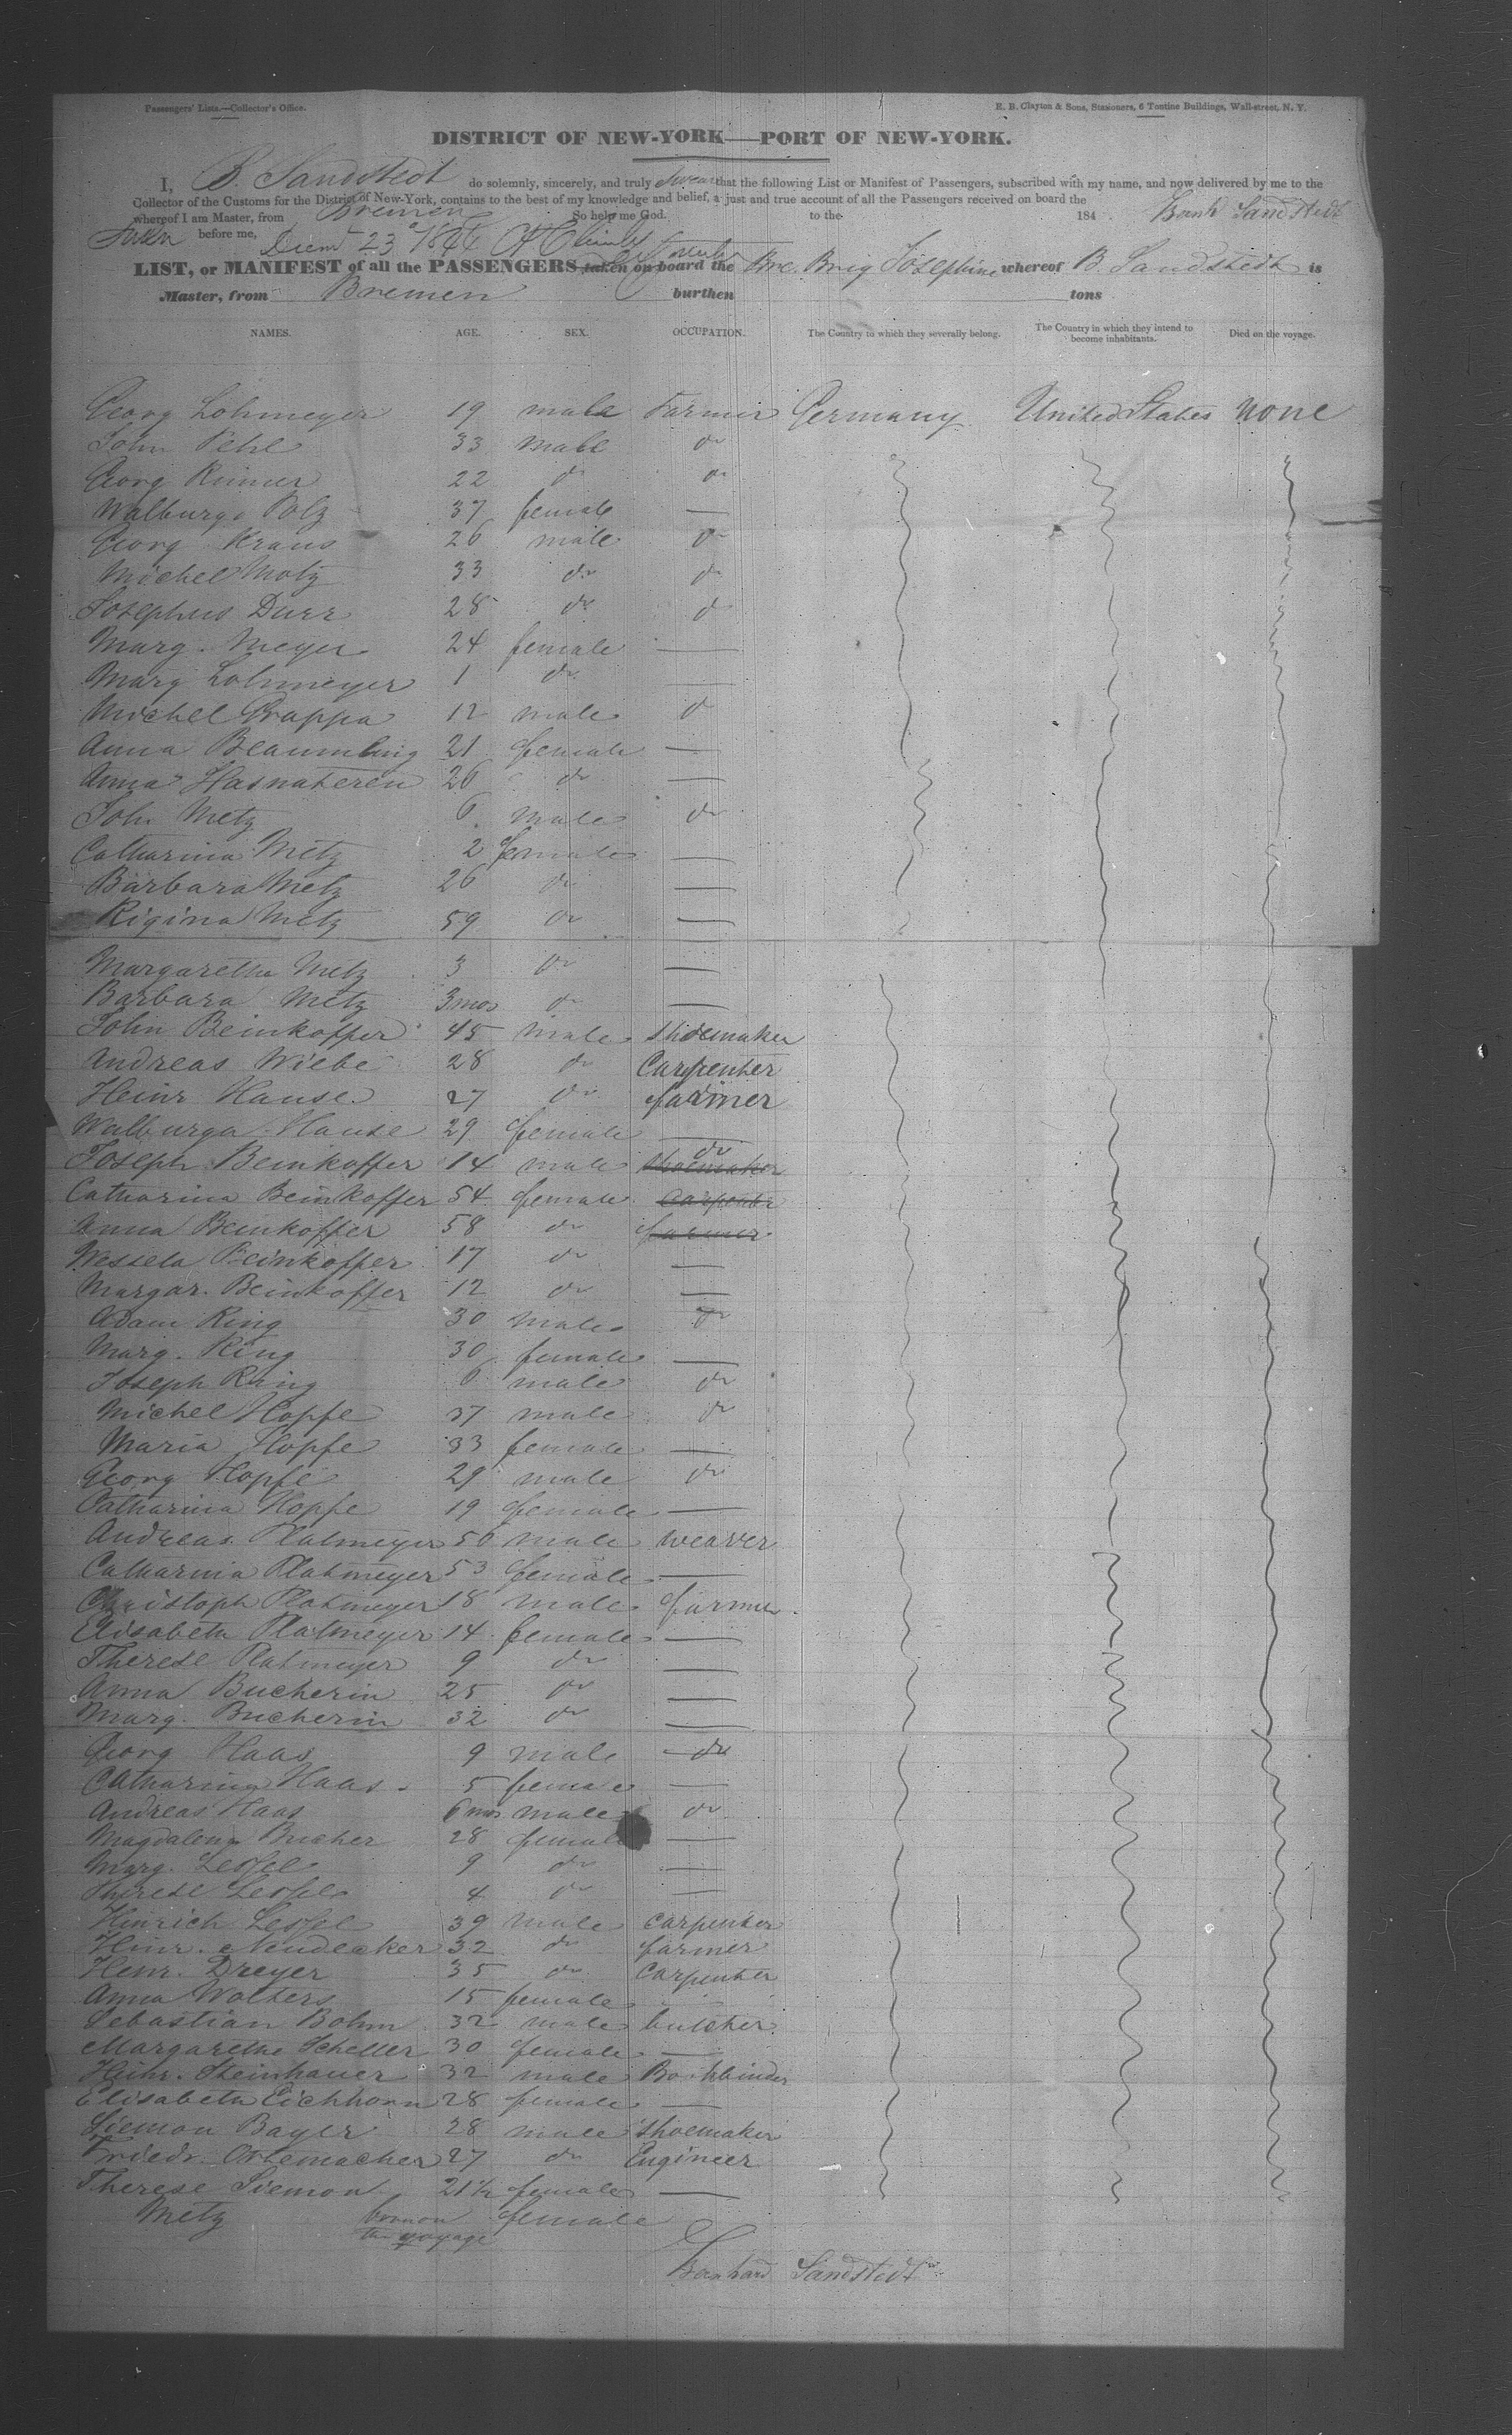 Passengers' Lists.—Collector's Office. E. B. Clayton & Sons, Stationers, 6 Tontine Buildings, Wall-street, N. Y.
DISTRICT OF NEW-YORK—PORT OF NEW-YORK.
I, B. Sandstedt do solemnly, sincerely, and truly swear that the following List or Manifest of Passengers, subscribed with my name, and now delivered by me to the
Collector of the Customs for the District of New-York, contains to the best of my knowledge and belief, a just and true account of all the Passengers received on board the
whereof I am Master, from Bremen So help me God. to the 184 . Sandstedt
before me, 23 1844
LIST, or MANIFEST of all the PASSENGERS taken on board the Bre. Brig Josephine whereof B. Sandstedt is
Master, from Bremen burthen tons
NAMES. AGE. SEX. OCCUPATION. The Country to which they severally belong. The Country in which they intend to become inhabitants. Died on the voyage.
Georg Lohmeyer 19 male Farmer Germany United States none
John Pehl 33 male do
Georg 22 do do
Walburga Polz 37 female —
Georg Kraus 26 male do
Michel Motz 33 do do
Josephus Durr 28 do do
Marg. Meyer 24 female —
Marg Lohmeyer 1 do —
Michel Prappa 12 male do
Anna 21 female —
Anna Hasnateren 26 do —
John Metz 6 male do
Catharina Metz 2 female —
Barbara Metz 26 do —
Rigina Metz 59 do —
Margaretha Metz 3 do —
Barbara Metz 3 mos do —
John Beinkoffer 45 male shoemaker
Andreas Wiebe 28 do Carpenter
Heinr Hause 27 do farmer
Walburga Hause 29 female —
Joseph Beinkoffer 14 male shoemaker do
Catharina Beinkoffer 54 female carpenter
Anna Beinkoffer 58 do farmer
Wessela Beinkoffer 17 do —
Margar. Beinkoffer 12 do —
Adam Ring 30 male do
Marg. Ring 30 female —
Joseph Ring 6 male do
Michel Hopfe 37 male do
Maria Hopfe 33 female —
Georg Hopfe 29 male do
Catharina Hopfe 19 female —
Andreas Platmeyer 56 male weaver
Catharina Platmeyer 53 female —
Christoph Platmeyer 18 male farmer
Elisabeth Platmeyer 14 female —
Therese Platmeyer 9 do —
Anna Bucherin 25 do —
Marg. Bucherin 32 do —
Georg Haas 9 male do
Catharina Haas 5 female —
Andreas Haas 6 mos male do
Magdalena Bucher 28 female —
Marg. Lessel 9 do —
Therese Lessel 4 do —
Hinrich Lessel 39 male carpenter
Hinr. Neudecker 32 do farmer
Henr. Dreyer 35 do Carpenter
Anna Wolters 15 female
Sebastian Bohm 32 male butcher
Margarethe Scheller 30 female —
Heinr. Steinhauer 32 male Bookbinder
Elisabeth Eichhorn 28 female —
Siemon Bayer 28 male Shoemaker
Friedr. Ortemacher 27 do Engineer
Therese Siemon 21½ female —
Metz born on the voyage female
Bernhard Sandstedt